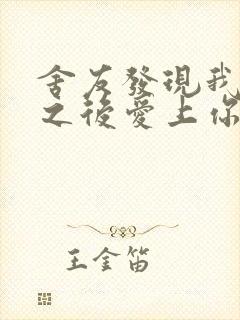 舍友發現我
之後愛上你
王金笛